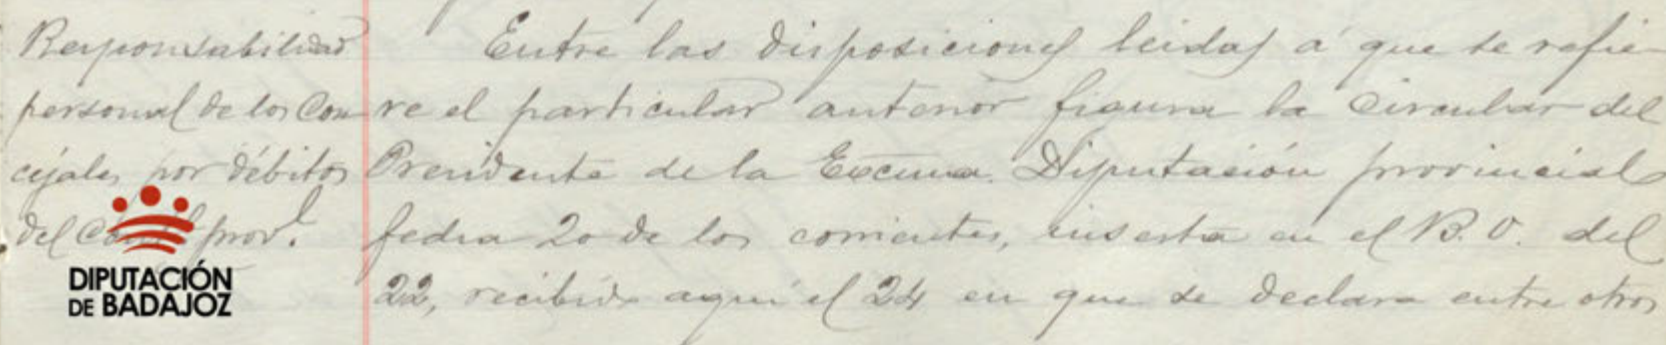 Responsabilidad
personal de los Con
cejales por débitos
del prov.l
Entre las disposiciones leidas á que se refie-
re el particular anterior figura la Circular del
Presidente de la Excma. Diputación provincial
fecha 20 de los corrientes, inserta en el B. O. del
22, recibido aquí el 24 en que se declara entre otros
DIPUTACIÓN
DE BADAJOZ